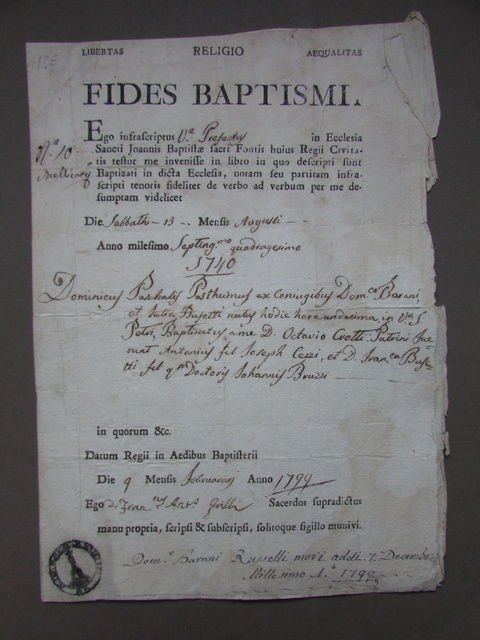 LIBERTAS RELIGIO AEQUALITAS
FIDES BAPTISMI.
Ego infrascriptus Vs. Prefectus in Ecclesia
Sancti Joannis Baptistæ sacri Fontis huius Regii Civita-
N.º 10
tis testor me invenisse in libro in quo descripti sunt
Baptizati in dicta Ecclesia, notam seu partitam infra-
scripti tenoris fideliter de verbo ad verbum per me de-
sumptam videlicet
Die Sabbathi 13 Mensis Augusti
Anno milesimo Septing.mo quadragesimo
1740
Dominicus Paschalis Posthumus ex Coniugibus Dom.co Barani,
et Busetti natus hodie hora undecima, in
Petri, Baptizatus a me D. Octavio Crotti. Patrini fue-
runt Antonius fil Joseph et D. Fran.ca Buse-
tti fil qm Doctoris Johannis Bruzzi
in quorum &c.
Datum Regii in Aedibus Baptisterii
Die 9 Mensis februarij Anno 1799
Ego D. Fran.cus Ant.s Grilli Sacerdos supradictus
manu propria, scripsi & subscripsi, solitoque sigillo munivi.
Dom.º Barani morì addì 7. Decembre
Millesimo 1799